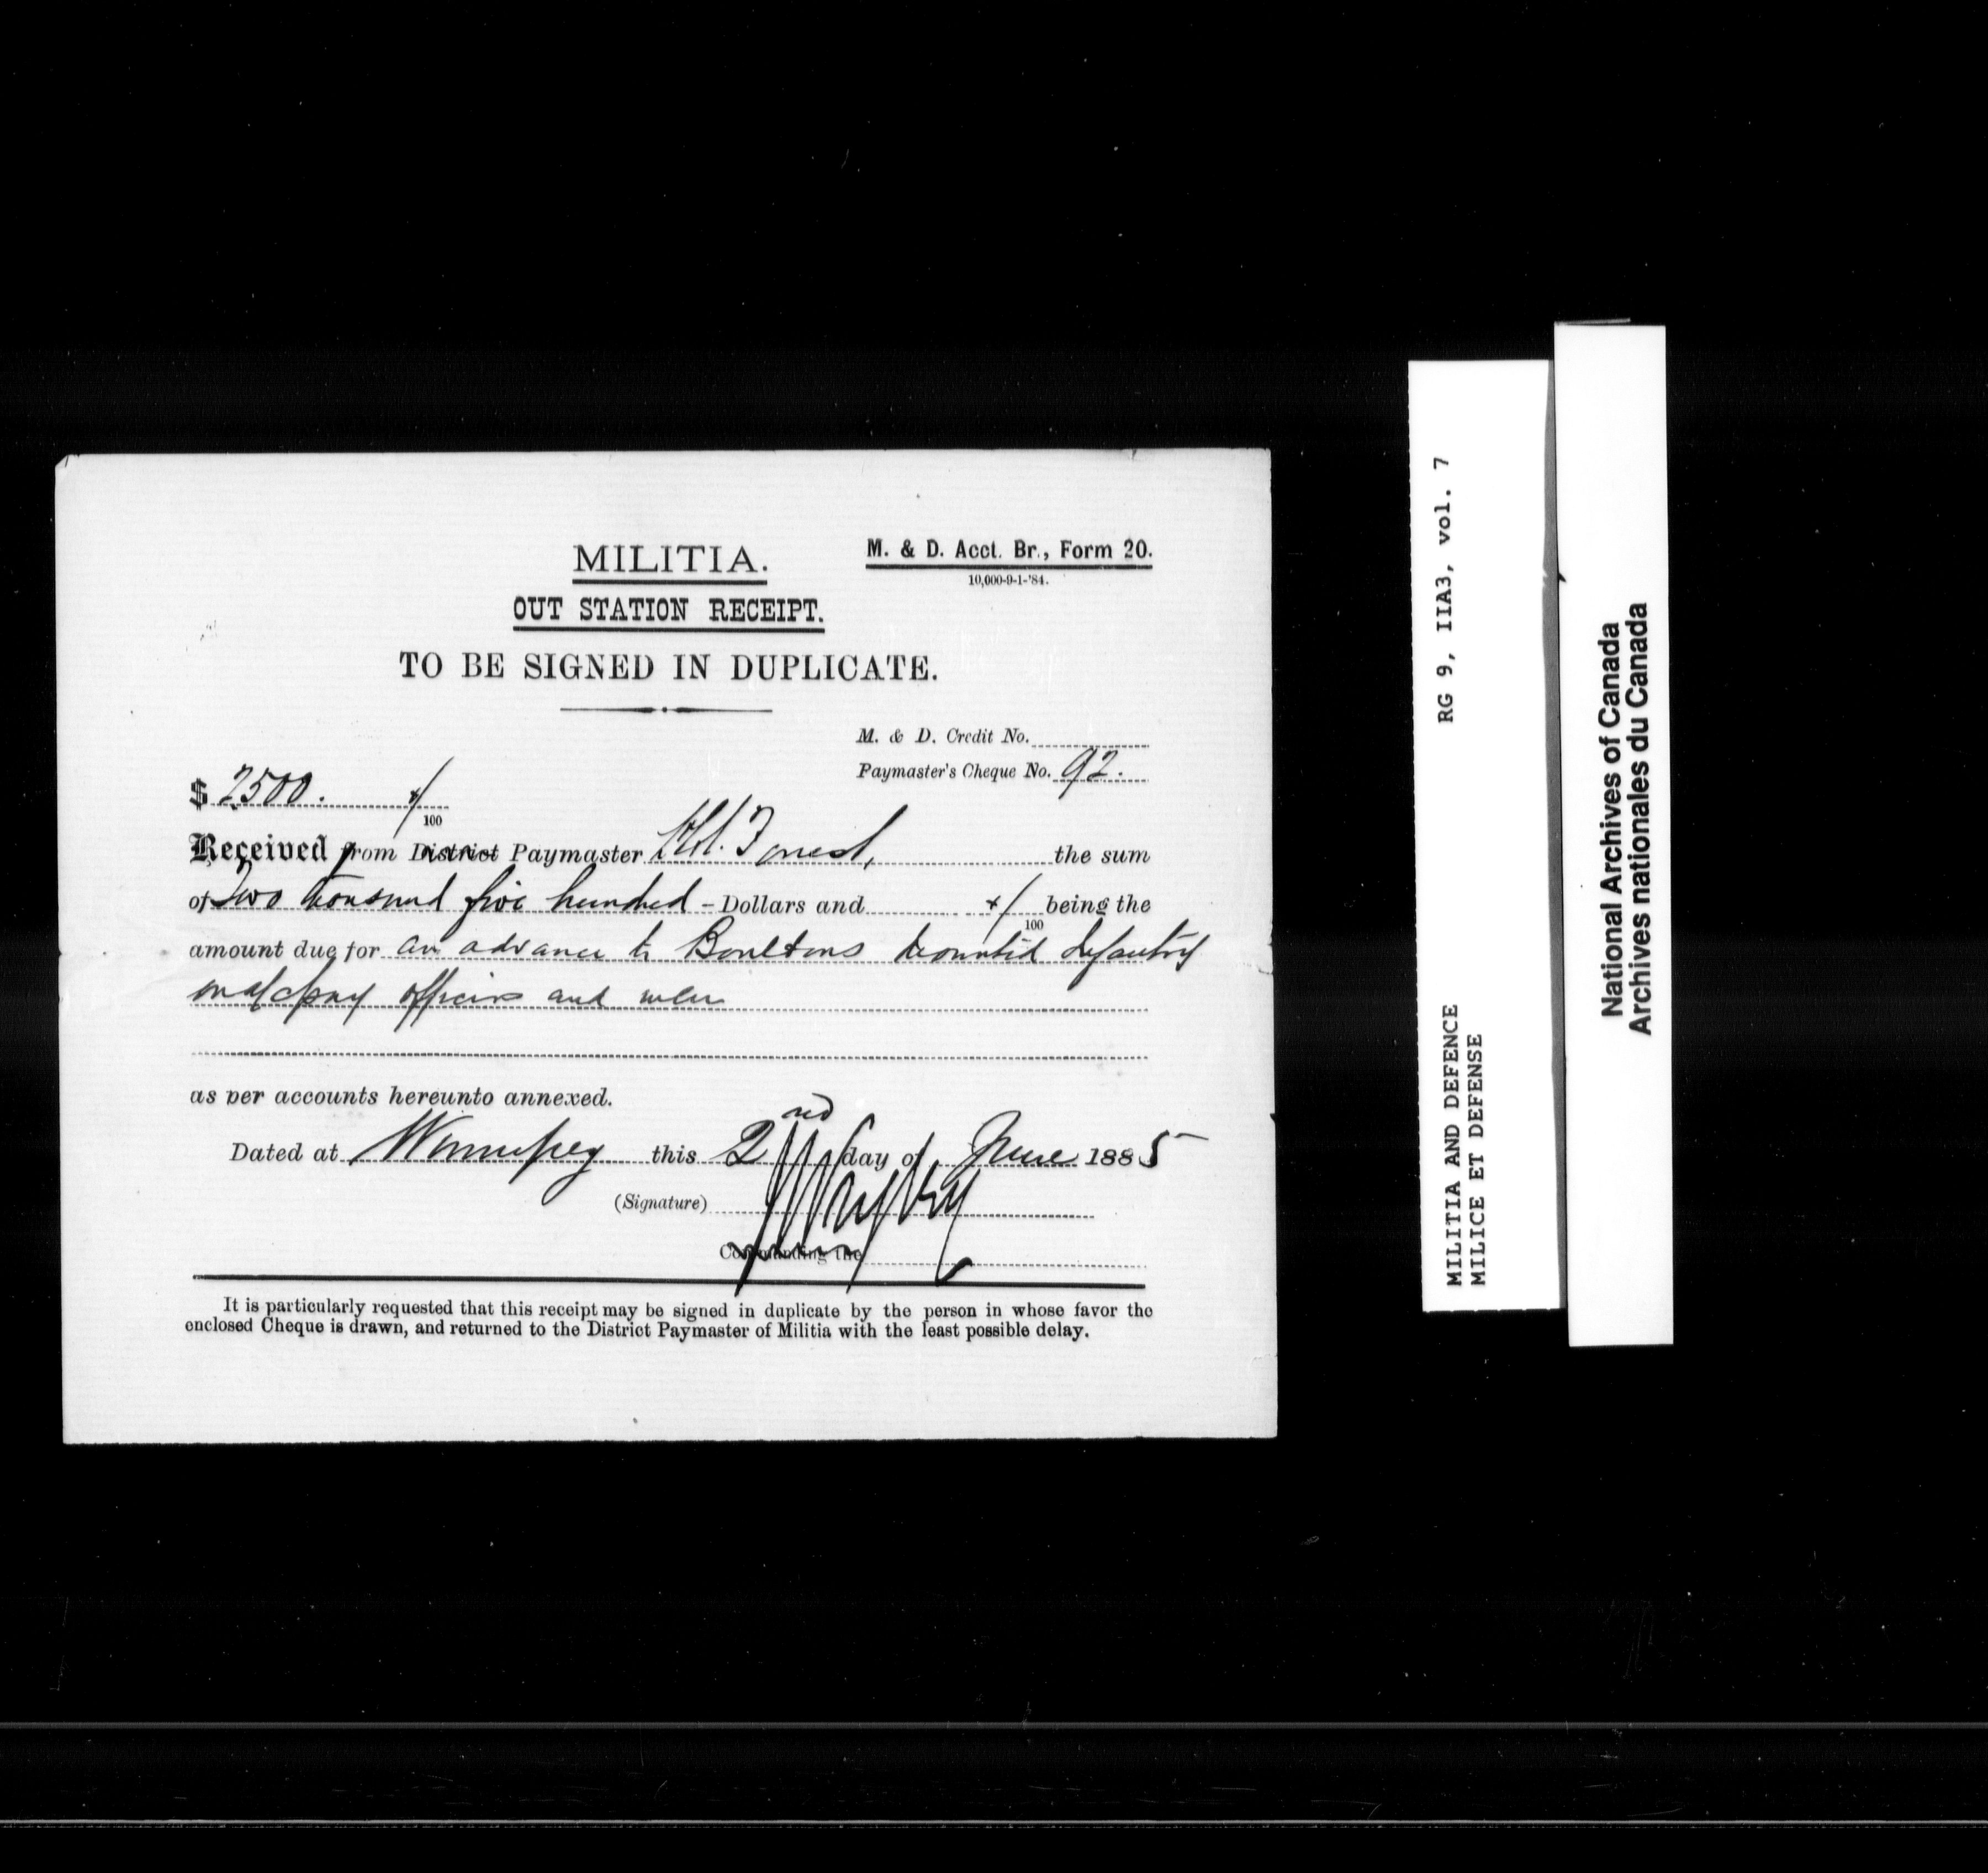 MILITIA.
M. & D. Acct. Br., Form 20.
10,000-9-1-'84.
OUT STATION RECEIPT.
TO BE SIGNED IN DUPLICATE.
M. & D. Credit No.
Paymaster's Cheque No. 92.
$ 2500. x/100
Received from District Paymaster Forrest, the sum
of Two thousand five hundred - Dollars and x/100 being the
amount due for an advance to Boultons Mounted Infantry
on a/c pay officers and men
as per accounts hereunto annexed.
Dated at Winnipeg this 2nd day of June 1885
(Signature)
Commanding the
It is particularly requested that this receipt may be signed in duplicate by the person in whose favor the
enclosed Cheque is drawn, and returned to the District Paymaster of Militia with the least possible delay.
MILITIA AND DEFENCE RG 9, IIA3, vol. 7
MILICE ET DEFENSE
National Archives of Canada
Archives nationales du Canada